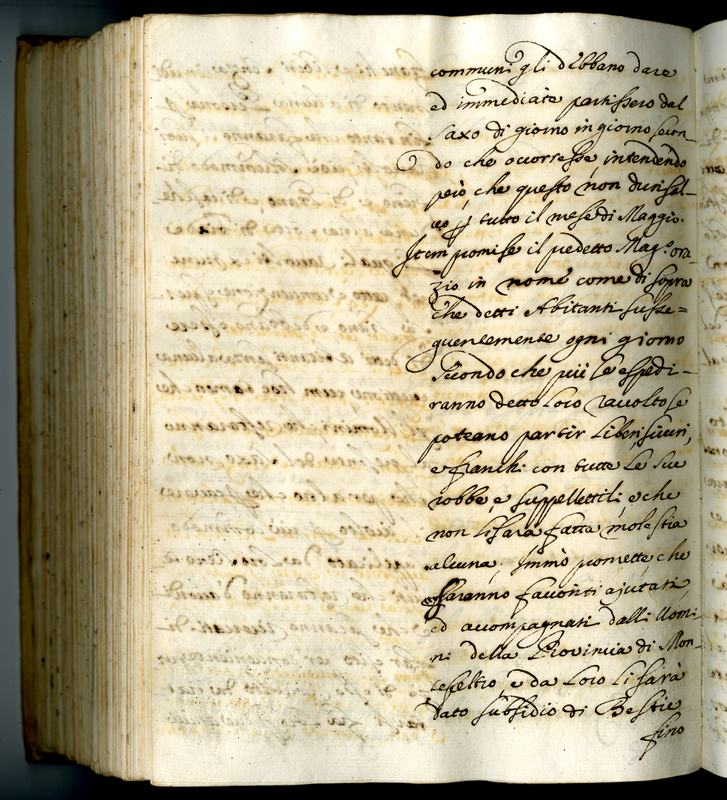 communi gli debbano dare
ed immediate partissero dal
Saxo di giorno in giorno secon-
do che occorresse intendendo
però che questo non durisal-
vo p tutto il mese di Maggio.
Item pomise il pedetto Mag.o ora-
zio in nome come di sopra
che detti Abitanti susse=
guentemente ogni giorno
Secondo che più le espedi-
ranno detto loro raccolto se
poteano partir liberi, sicuri,
e franchi con tutte le sue
robbe, e suppellettili e che
non li sarà fatta molestia
alcuna. Immò pomette che
saranno favoriti ajutati,
ed accompagnati dalli Uomi-
ni della Provincia di Mon-
tefeltro e da loro li sarà
dato subsidio di Bestie
fino